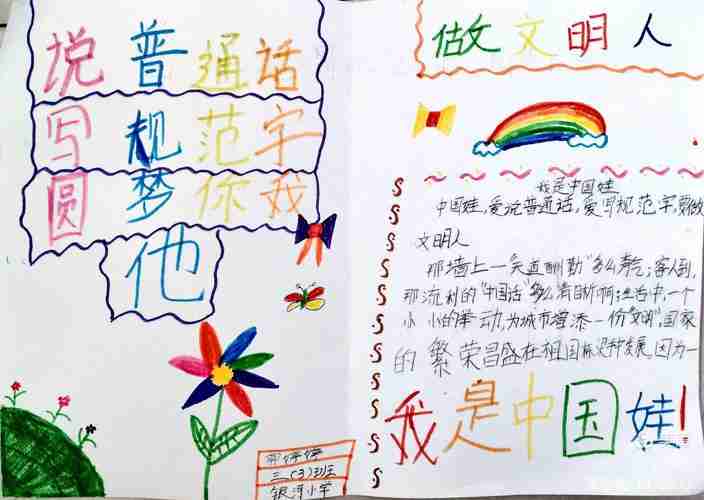 说普通话
写规范字
圆梦你我
他
三(3)班
银河小学
做文明人
我是中国娃
中国娃,爱说普通话,爱写规范字,要做
文明人
那墙上一"天道酬勤"多么秀气;客人到,
那流利的"中国话"多么清晰啊;生活中,一个
小小的举动,为城市增添一份文明",国家
的繁荣昌盛在祖国 发展,因为一
我是中国娃!